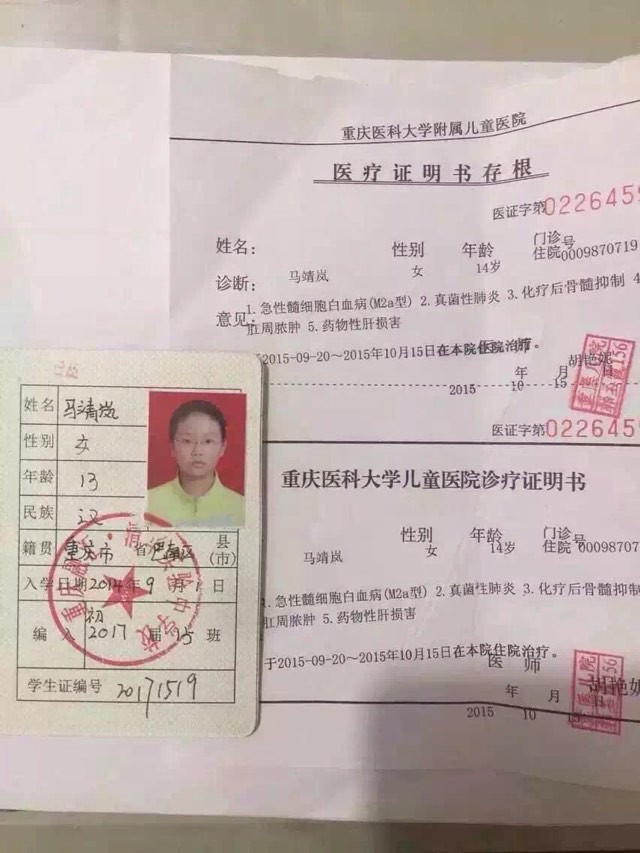 重庆医科大学附属儿童医院
医疗证明书存根
医证字第0226459
姓名: 马靖岚 性别 女 年龄 14岁 门诊 住院 号 0009870719
诊断: 1.急性髓细胞白血病(M2a型) 2.真菌性肺炎 3.化疗后骨髓抑制 4
意见: 肛周脓肿 5.药物性肝损害
2015-09-20～2015年10月15日在本院住院治疗。
医师 胡艳妮
2015 年 10 月 15 日
医证字第0226459
重庆医科大学儿童医院诊疗证明书
马靖岚 性别 女 年龄 14岁 门诊 住院 号 00098707
1.急性髓细胞白血病(M2a型) 2.真菌性肺炎 3.化疗后骨髓抑制
肛周脓肿 5.药物性肝损害
于2015-09-20～2015年10月15日在本院住院治疗。
医师 胡艳妮
2015 年 10 月 15
姓名 马靖岚
性别 女
年龄 13
民族 汉
籍贯 重庆市 省 巴南区 县(市)
入学日期 2014年9月1日
编入 初2017届15班
学生证编号 20171519